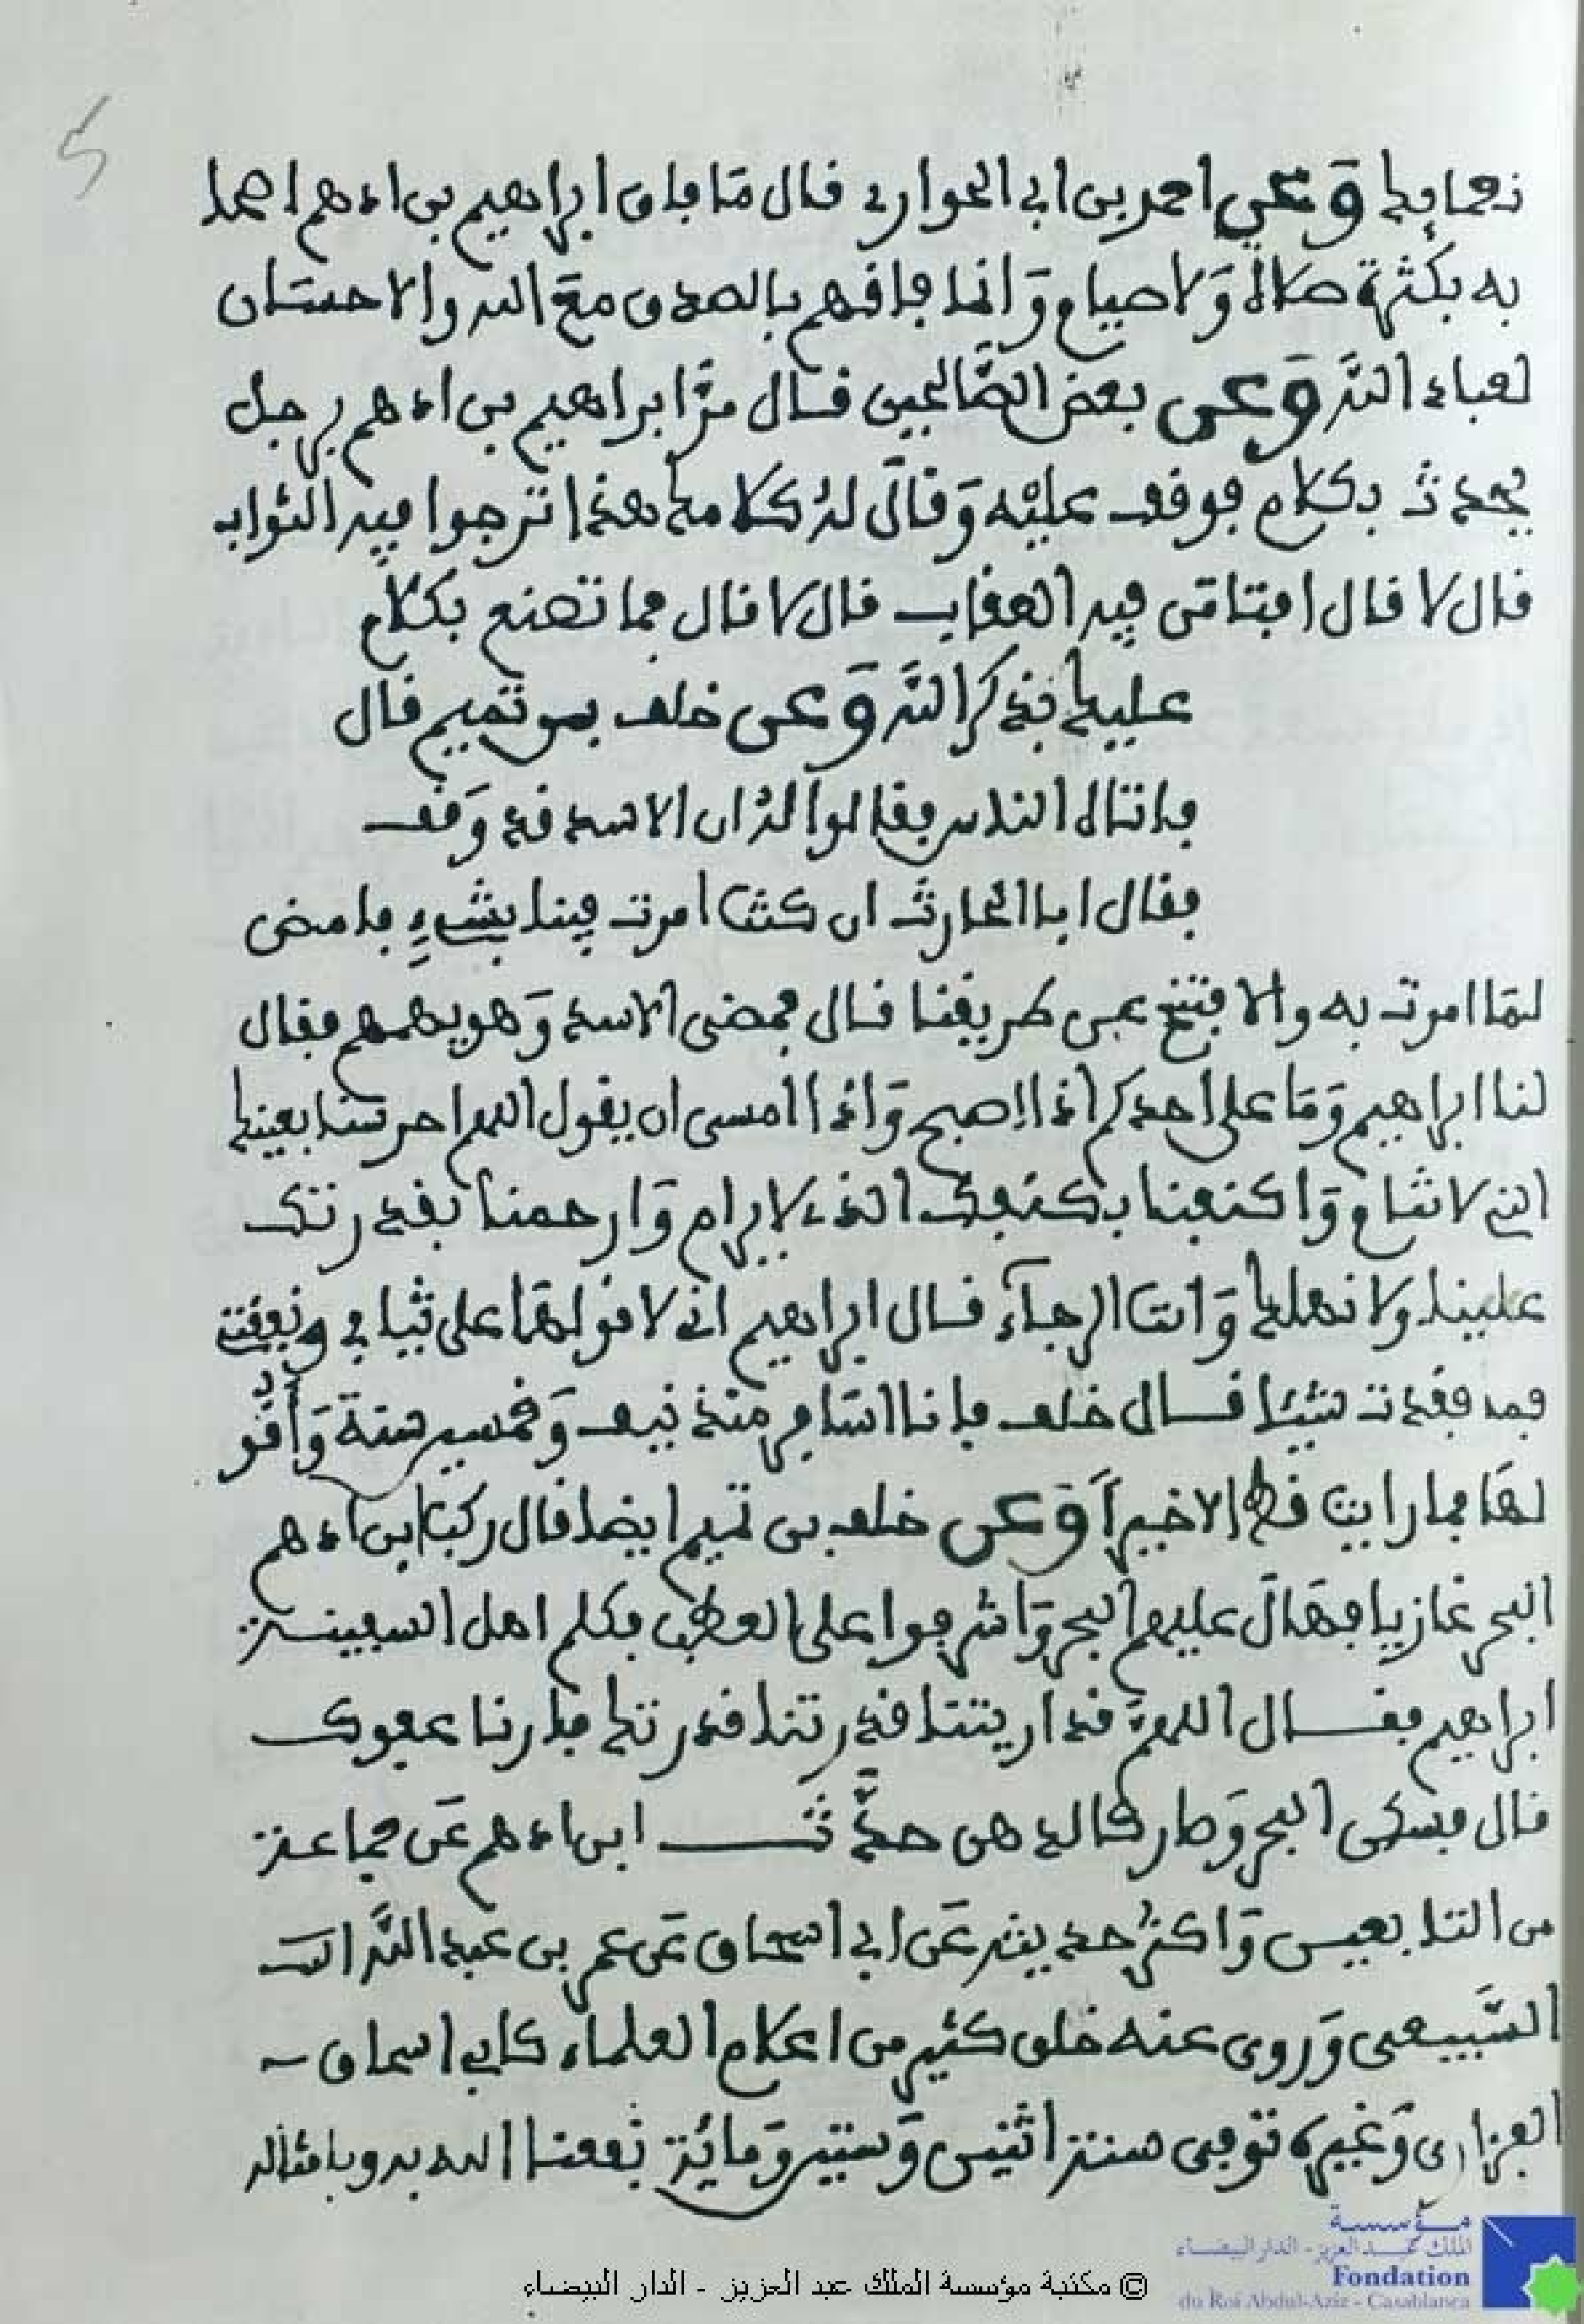 5
نعمايك وعن احمد بن ابي الحواري قال ما فاق ابراهيم بن ادهم اصحابه
به بكثرة صلاة ولا صيام وانما فاقهم بالصدق مع الله والاحسان
لعباد الله وعن بعض الصالحين قال مر ابراهيم بن ادهم برجل
يحدث بكلام فوقف عليه وقال له كلامك هذا ترجوا فيه الثواب
قال لا قال افتامن فيه العقاب قال لا قال فما تصنع بكلام
عليك بذكر الله وعن خلف بن تميم قال
فاتاه الناس فقالوا له ان الاسد قد وقف
فقال ابا الحارث ان كنت امرت فينا بشيء فامض
لما امرت به والا فتنح عن طريقنا قال فمضى الاسد وهو يهمهم فقال
لنا ابراهيم وما على احدكم اذا اصبح واذا امسى ان يقول اللهم احرسنا بعينك
التي لا تنام واكنفنا بكنفك الذي لا يرام وارحمنا بقدرتك
علينا ولا نهلك وانت الرجاء قال ابراهيم اني لاقولها على ثيابي ونفقتي
فما فقدت شيئا قال خلف فانا اسافر منذ نيف وخمسين سنة واقو
لها فما رايت قط الا خيرا وعن خلف بن تميم ايضا قال ركب ابن ادهم
البحر غازيا فهال عليهم البحر واشرفوا على العطب فكلم اهل السفينة
ابراهيم فقال اللهم قد اريتنا قدرتك فارنا عفوك
قال فسكن البحر وصار كالدهن حدث ابن ادهم عن جماعة
من التابعين واكثر حديثه عن ابي اسحاق عمر بن عبد الله
السبيعي وروى عنه خلق كثير من اعلام العلماء كابي اسحاق
الفزاري وغيره توفي سنة اثنين وستين ومائة نفعنا الله به وبامثاله
مؤسسة
الملك عبد العزيز - الدار البيضاء
Fondation
du Roi Abdul-Aziz - Casablanca
© مكتبة مؤسسة الملك عبد العزيز - الدار البيضاء